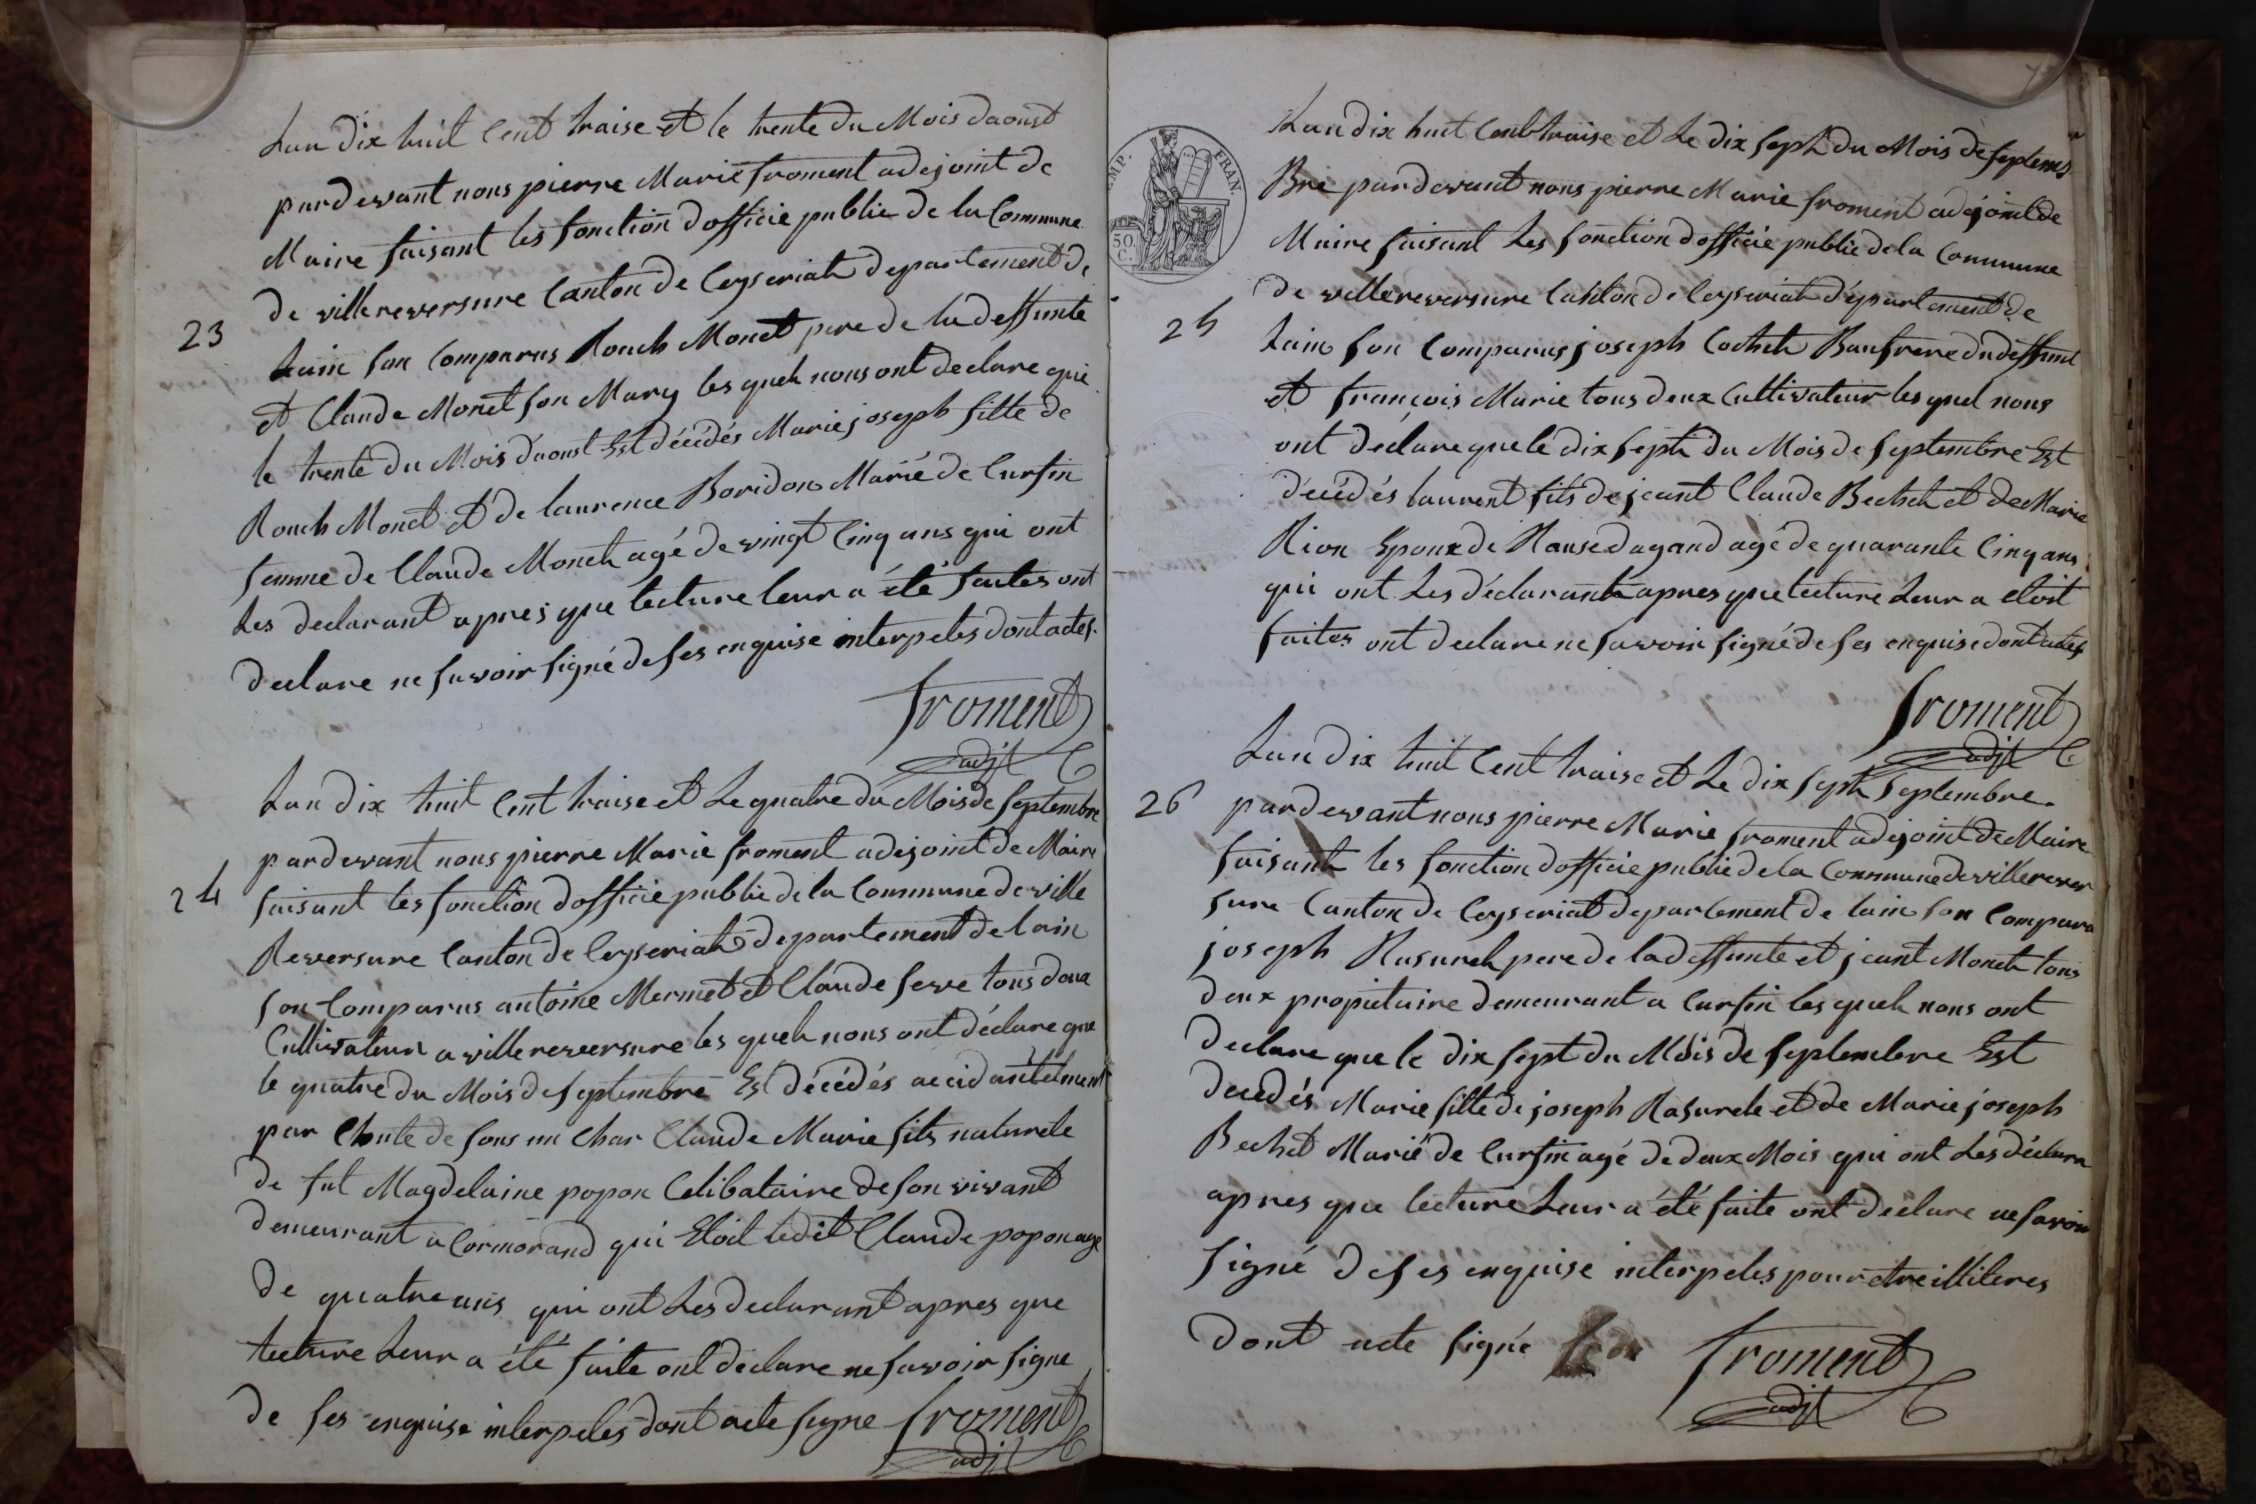 Lan dix huit Cent traise et le trente du Mois daoust
pardevant nous pierre Marie froment adejoint de
Maire faisant les fonction dofficie public de la Commune
de villereversure Canton de Ceyseriat departement de
23
Lain son Comparus Rouch Monet pere de la deffunte
et Claude Monet son Mary les quels nous ont declare que
le trente du Mois daoust Est décédés Marie joseph fille de
Rouch Monet et de laurence Boridon Marié de Cursin
femme de Claude Monet agé de vingt Cinq ans qui ont
Les declarant apres que lecture leur a été faites ont
declare ne savoir signé de ses enquise interpeles dont actes.
froment
adjt
Lan dix huit Cent traise et Le quatre du Mois de Septembre
pardevant nous pierre Marie froment adejoint de Maire
24
faisant les fonction dofficie public de la Commune de ville
Reversure Canton de Ceyseriat departement de lain
son Comparus antoine Mermet et Claude serve tous deux
Cultivateur a villereversure les quels nous ont déclare que
le quatre du Mois de septembre Est décédés accidantelment
par Chute de sous un Char Claude Marie fils naturele
de fut Magdelaine popon Celibataire de son vivant
demeurant a Cormorand qui Etoit ledit Claude popon age
de quatre ans qui ont Les declarant apres que
lecture Leur a été faite ont declare ne savoir signe
de ses enquise interpelés dont acte signe froment
adjt
EMP. FRAN.
50.
C.
Lan dix huit Cent traise et Le dix sept du Mois de septem
Bre pardevant nous pierre Marie froment adejoint de
Maire faisant Les fonction dofficie public de la Commune
de villereversure Canton de Ceyseriat département de
25
Lain son Comparus joseph Cochet Baufrere du deffunt
et françois Marie tous deux Cultivateur les quel nous
ont declare que le dix sept du Mois de septembre Est
décédés laurent fils de jeant Claude Bechet et de Marie
Rion Epoux de Rause dagand agé de quarante Cinq ans
qui ont Les déclarant apres que lecture Leur a etoit
faites ont declare ne savoir signé de ses enquise dont actes
froment
adjt
Lan dix huit Cent traise et Le dix sept Septembre.
26
pardevant nous pierre Marie froment adejoint de Maire
faisant les fonction dofficie public de la Commune de villerever
sure Canton de Ceyseriat departement de lain son Compara
joseph Rasurel pere de la deffunte et jeant Monet tous
deux propietaire demeurant a Cursin les quels nous ont
declare que le dix sept du Mois de septembre Est
decedés Marie fille de joseph Rasurele et de Marie joseph
Bechet Marié de Cursin agé de deux Mois qui ont Les déclara
apres que lecture Leur a été faite ont declare ne savoir
signé de ses enquise interpeles pour etre illiteres
dont acte signé
froment
adjt